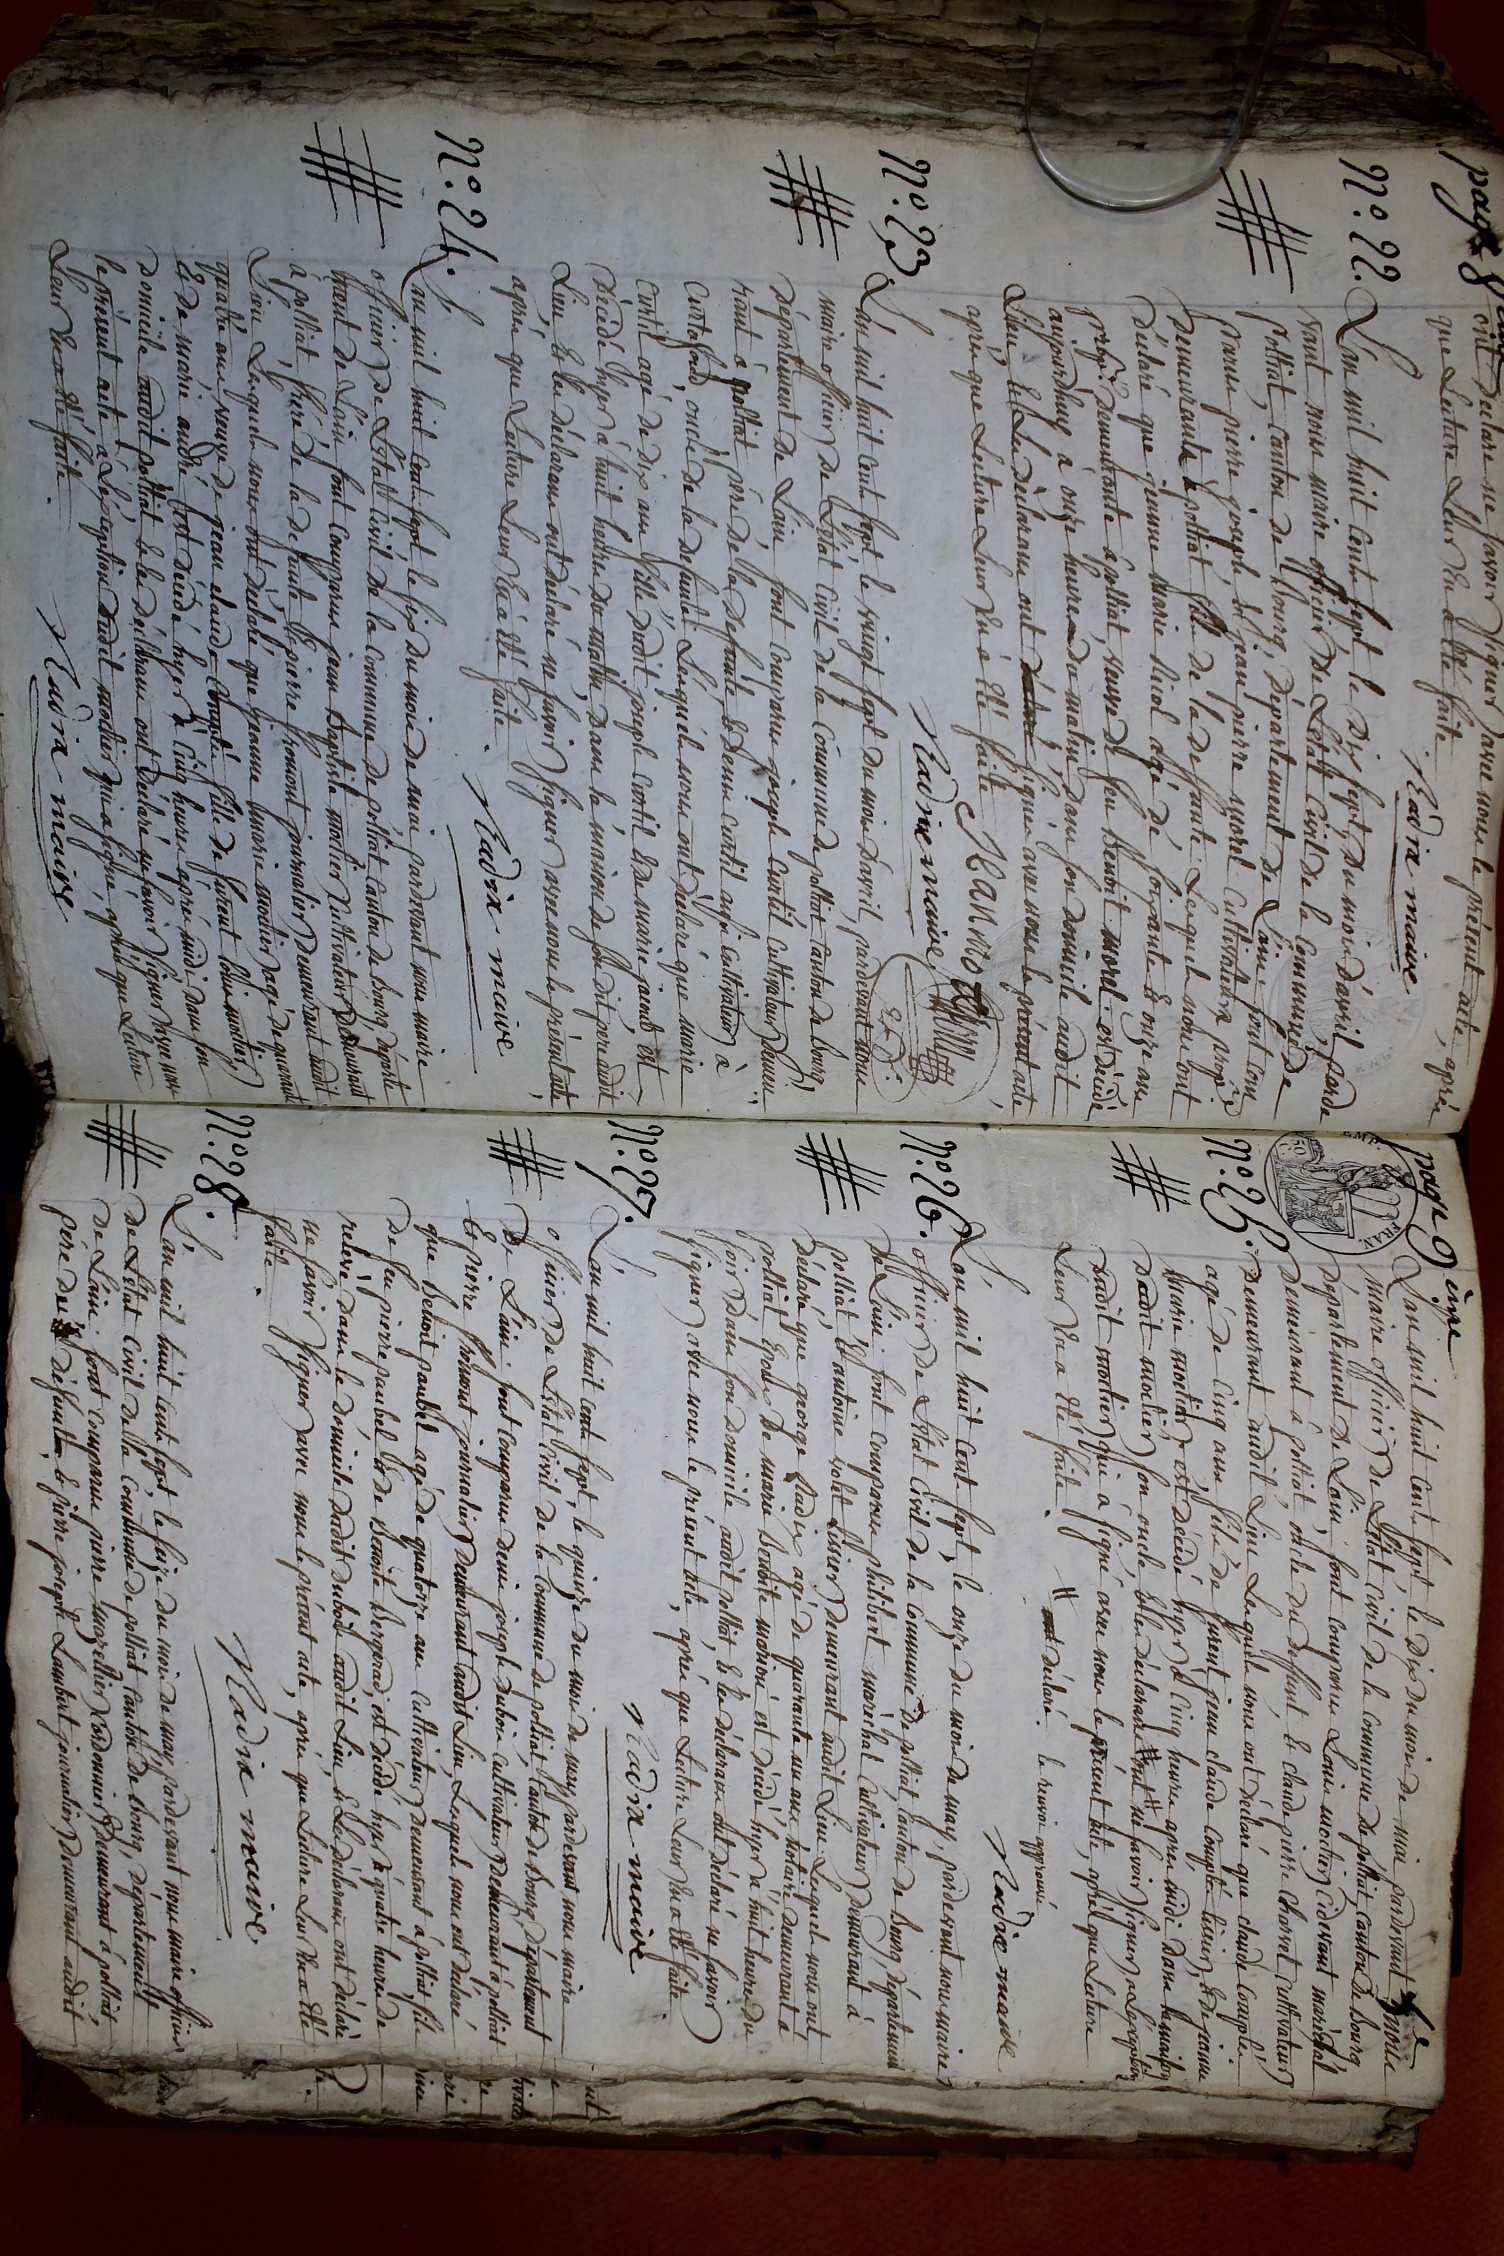 page 8
ont déclaré ne savoir signer avec nous le présent acte, après
que Lecture Leur En a été faite.
Nadix maire
N.° 22.
L'an mil huit cent sept le dix sept du mois d'avril, parde
vant nous maire officier de L'état civil de la Commune de
polliat, canton de bourg, département de L'ain. sont com
parus pierre joseph et jean pierre morel cultivateurs propres
demeurants à polliat, fils de la deffunte. Lesquels nous ont
déclaré que jeanne marie Nicol agé de soixante et onze ans
demeurante à polliat, veuve de feu benoit morel est décédé
aujourdhuy à onze heures du matin dans son domicile audit
Lieu, et les déclarans ont signé avec nous le présent acte
après que Lecture Leur En a été faite
Nadix maire
N.° 23
L'an mil huit cent sept, le vingt sept du mois d'avril, pardevant nous
maire officier de L'état civil de la Commune de polliat, canton de bourg,
département de L'ain sont comparus joseph curtil cultivateur demeu
rant à polliat père de la defunte, et denis curtil aussi cultivateur à
oncle de la defunte Lesquels nous ont déclaré que marie
curtil agé de dix ans fille dudit joseph curtil et de marie jacud est
décédé hyer à huit heures du matin, dans la maison de son dit père audit
Lieu et les déclarans ont déclaré ne savoir signer avec nous le présent acte,
après que Lecture Leur En a été faite.
Nadix maire
N.° 24.
L'an mil huit cent sept le six du mois de mai pardevant nous maire
officier de L'état civil de la commune de polliat canton de bourg, départe
ment de L'ain sont comparus jean baptiste mortier cultivateur demeurant
à polliat, frère de la defunte et pierre fromont journalier demeurant audit
Lieu Lesquels nous ont déclaré que jeanne marie mortier agé de quarante
quatre ans veuve de jean claude Couple, fille de furent Louis mortier,
et de marie andré est décédé hyer à cinq heures après midi dans son
domicile audit polliat et les déclarans ont déclaré ne savoir signer avec nous
le présent acte à L'exception dudit mortier qui a signé, après que Lecture
Leur En a été faite.
Nadix maire
page 9 ème
N.° 25.
L'an mil huit cent sept le dix du mois de mai pardevant nous
maire officier de L'état civil de la commune de polliat, canton de bourg
département de L'ain, sont comparus Louis mortier cidevant maréchal
demeurant à polliat oncle du deffunt, et claude pierre charvet cultivateur
demeurant audit Lieu Lesquels nous ont déclaré que claude couple
agé de cinq ans, fils de furent jean claude couple et de jeanne
marie mortier, est décédé hyer à cinq heures après midi dans la maison
dudit mortier son oncle et les déclarans ont # ne savoir signer à L'exception
dudit mortier qui à signé avec nous le présent acte, après que Lecture
Leur En a été faite.
# déclaré. le renvoi approuvé
Nadix maire
N.° 26.
L'an mil huit cent sept, le onze du mois de may, pardevant nous maire
officier de L'état civil de la commune de polliat canton de bourg département
de L'ain sont comparus philibert maréchal cultivateur demeurant à
polliat et antoine volet tissier demeurant audit Lieu Lesquels nous ont
déclaré que george Nadix agé de quarante un ans notaire demeurant à
polliat époux de marie benoite est décédé hyer à huit heures du
soir dans son domicile audit polliat et les déclarans ont déclaré ne savoir
signer avec nous le présent acte, après que Lecture Leur En a été faite.
Nadix maire
N.° 27.
L'an mil huit cent sept, le quinze du mois de may, pardevant nous maire
officier de L'état civil de la commune de polliat, canton de bourg, département
de L'ain. sont comparus denis joseph dubois cultivateur demeurant à polliat
et pierre fromont journalier demeurant audit Lieu, Lesquels nous ont déclaré
que benoit paubel agé de quatorze ans cultivateur demeurant à polliat, fils
de feu pierre paubel et de benoite bergerad, est décédé hyer à quatre heures de
relevé dans le domicile dudit dubois audit Lieu et les déclarans ont déclaré
ne savoir signer avec nous le présent acte, après que Lecture Leur En a été
faite.
Nadix maire
N.° 28.
L'an mil huit cent sept le seize du mois de may pardevant nous maire officier
de L'état civil de la Commune de polliat canton de bourg, département
de L'ain. sont comparus pierre cordonnier demeurant à polliat
père du défunt et pierre joseph Lambert journalier demeurant audit